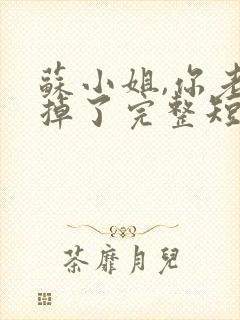 蘇小姐,你老
掉了完整短
茶靡月兒